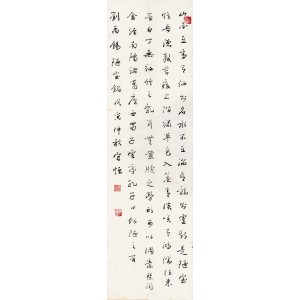 山不在高有仙則名水不在深有龍則靈斯是陋室
惟吾德馨苔痕上階綠草色入簾青談笑有鴻儒往來
無白丁無絲竹之亂耳無案牘之勞形可以調素琴閱
金經南陽諸葛廬西蜀子雲亭孔子曰何陋之有
劉禹錫陋室銘戊寅仲秋